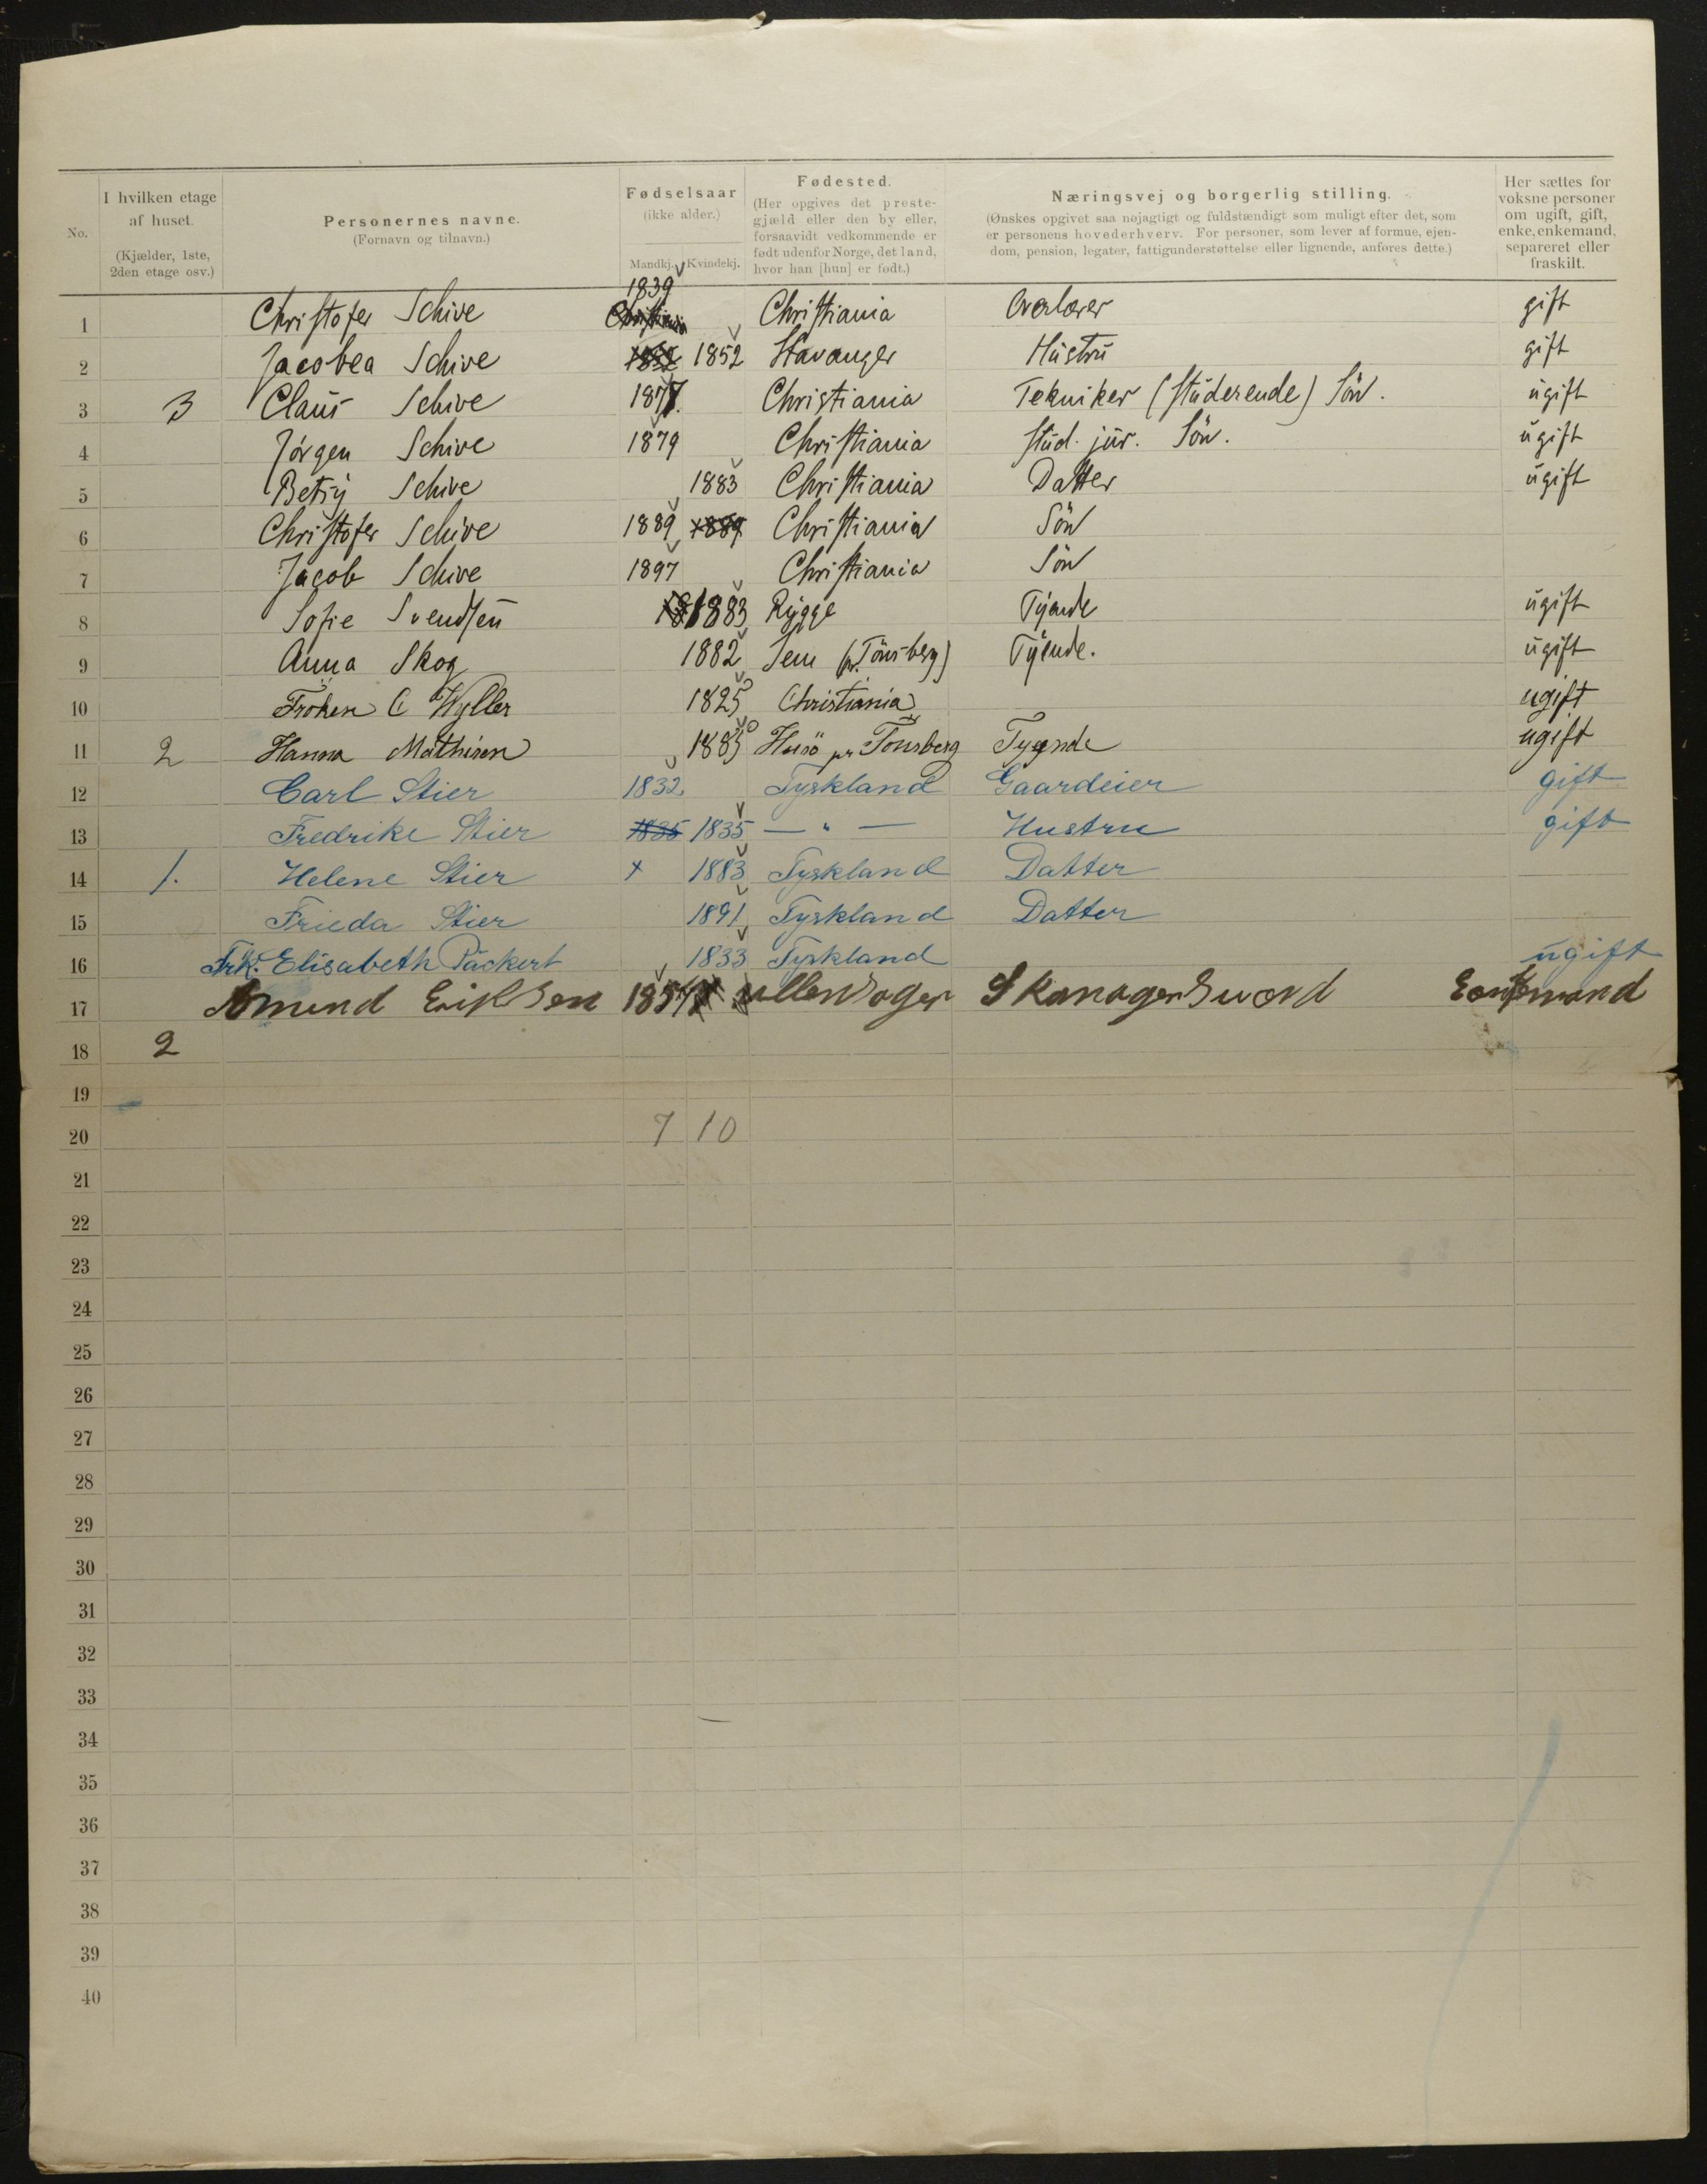 No.
I hvilken etage af huset. (Kjælder, 1ste, 2den etage osv.)
Personernes navne. (Fornavn og tilnavn.)
Fødselsaar (ikke alder.) Mandkj. Kvindekj.
Fødested. (Her opgives det prestegjæld eller den by eller, forsaavidt vedkommende er født udenfor Norge, det land, hvor han [hun] er født.)
Næringsvej og borgerlig stilling. (Ønskes opgivet saa nøjagtigt og fuldstændigt som muligt efter det, som er personens hovederhverv. For personer, som lever af formue, ejendom, pension, legater, fattigunderstøttelse eller lignende, anføres dette.)
Her sættes for voksne personer om ugift, gift, enke, enkemand, separeret eller fraskilt.
1 Christofer Schive 1839 Christiania Christiania Overlærer gift
2 Jacobea Schive 1852 1852 Stavanger Hustru gift
3 3 Claus Schive 1877. Christiania Tekniker (studerende) Sön. ugift
4 Jörgen Schive 1879 Christiania Stud. jur. Sön. ugift
5 Betsy Schive 1883 Christiania Datter ugift
6 Christofer Schive 1889 1889 Christiania Sön
7 Jacob Schive 1897 Christiania Sön
8 Sofie Svendsen 1883 Rygge Tyende ugift
9 Anna Skog 1882 Sem (pr. Tönsberg) Tyende. ugift
10 Fröken C Wyller 1825 Christiania ugift
11 2 Hanna Mathisen 1885 Husö pr Tönsberg Tyende ugift
12 Carl Stier 1832. Tyskland Gaardeier gift
13 Fredrike Stier 1835 1835 — " — Hustru gift
14 1. Helene Stier + 1883 Tyskland Datter
15 Frieda Stier 1891 Tyskland Datter
16 Frk. Elisabeth Päckert 1833 Tyskland ugift
17 Amund Eriksen 1854
18 2
19
20 7 10
21
22
23
24
25
26
27
28
29
30
31
32
33
34
35
36
37
38
39
40